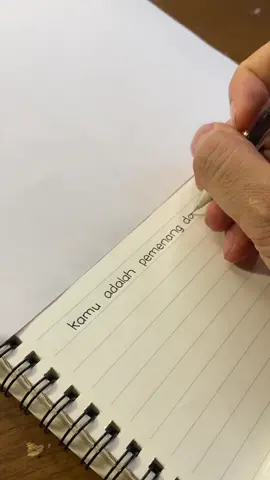 kamu adalah pemenang da